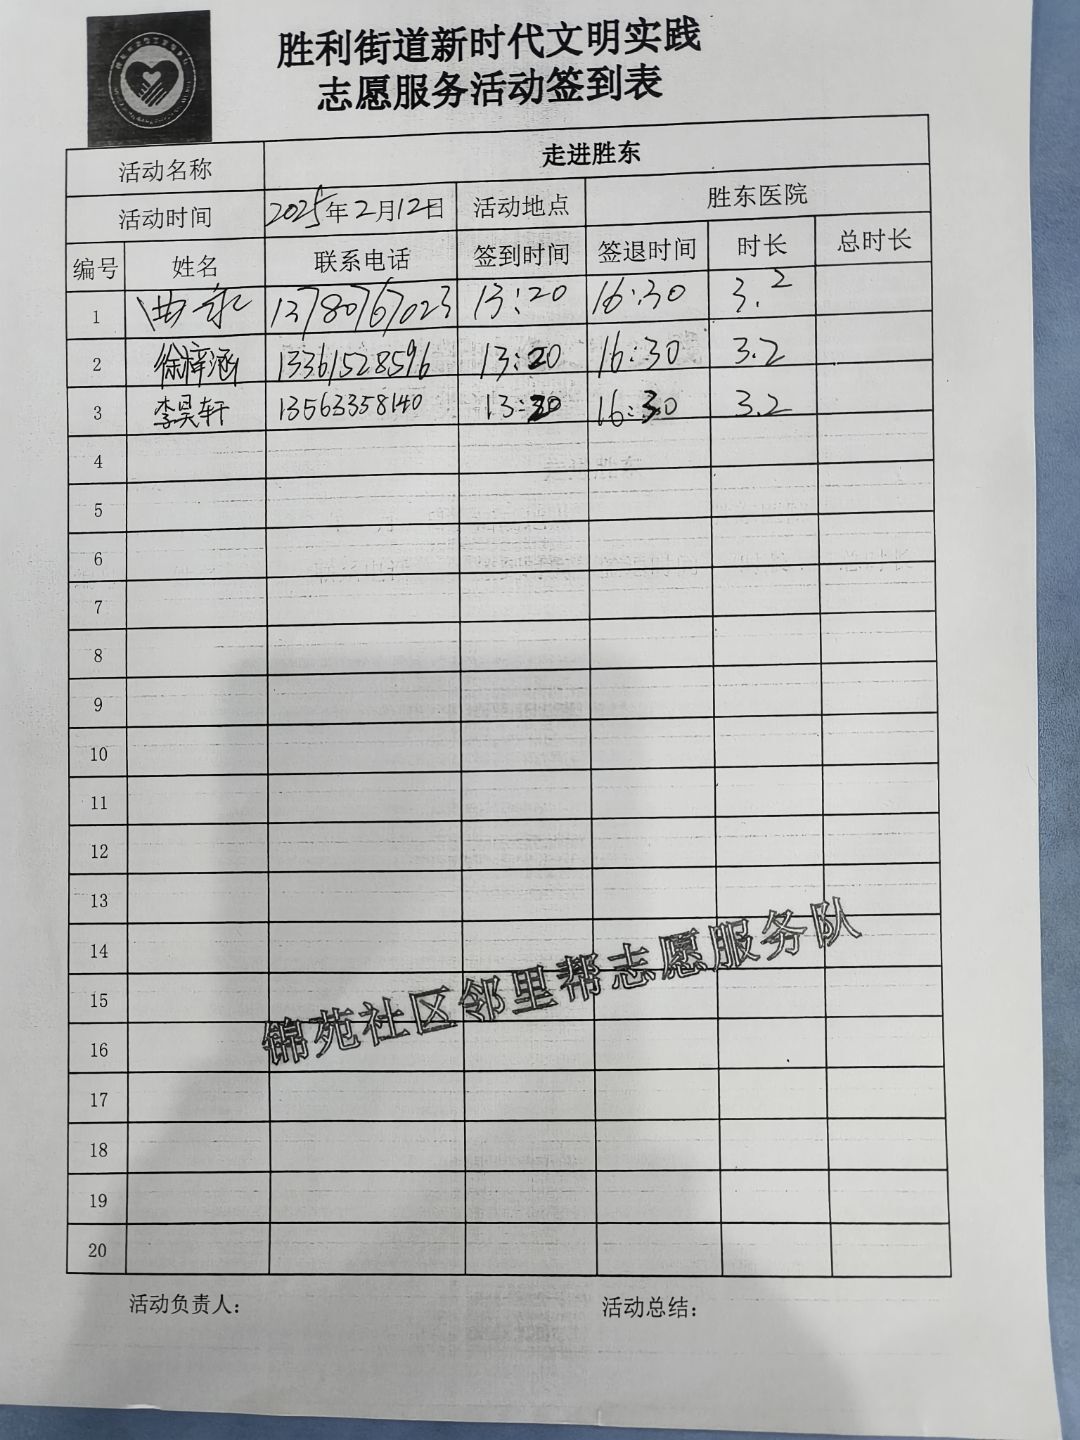 胜利街道新时代文明实践
志愿服务活动签到表
活动名称 走进胜东
活动时间 2025年2月12日 活动地点 胜东医院
编号 姓名 联系电话 签到时间 签退时间 时长 总时长
1 13780767023 13:20 16:30 3.2
2 徐梓涵 13361528596 13:20 16:30 3.2
3 李昊轩 13563358140 13:20 16:30 3.2
4
5
6
7
8
9
10
11
12
13
14
15
16
17
18
19
20
锦苑社区邻里帮志愿服务队
活动负责人: 活动总结: